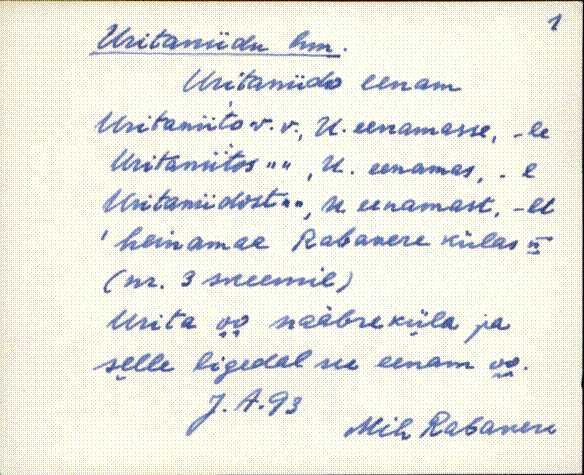 1
Uritaniidu hm.
Uritaniido eenam
Uritaniito v. v., U. eenamasse, -le
Uritaniitos „ „ , U. eenamas, - l
Uritaniidost „ „, U. eenamast, -lt
' heinamaa Rabavere külas
(nr. 3 skeemil)
Urita oo naabreküla ja
selle ligedal su eenam oo.
J. A. 93
Mih Rabavere